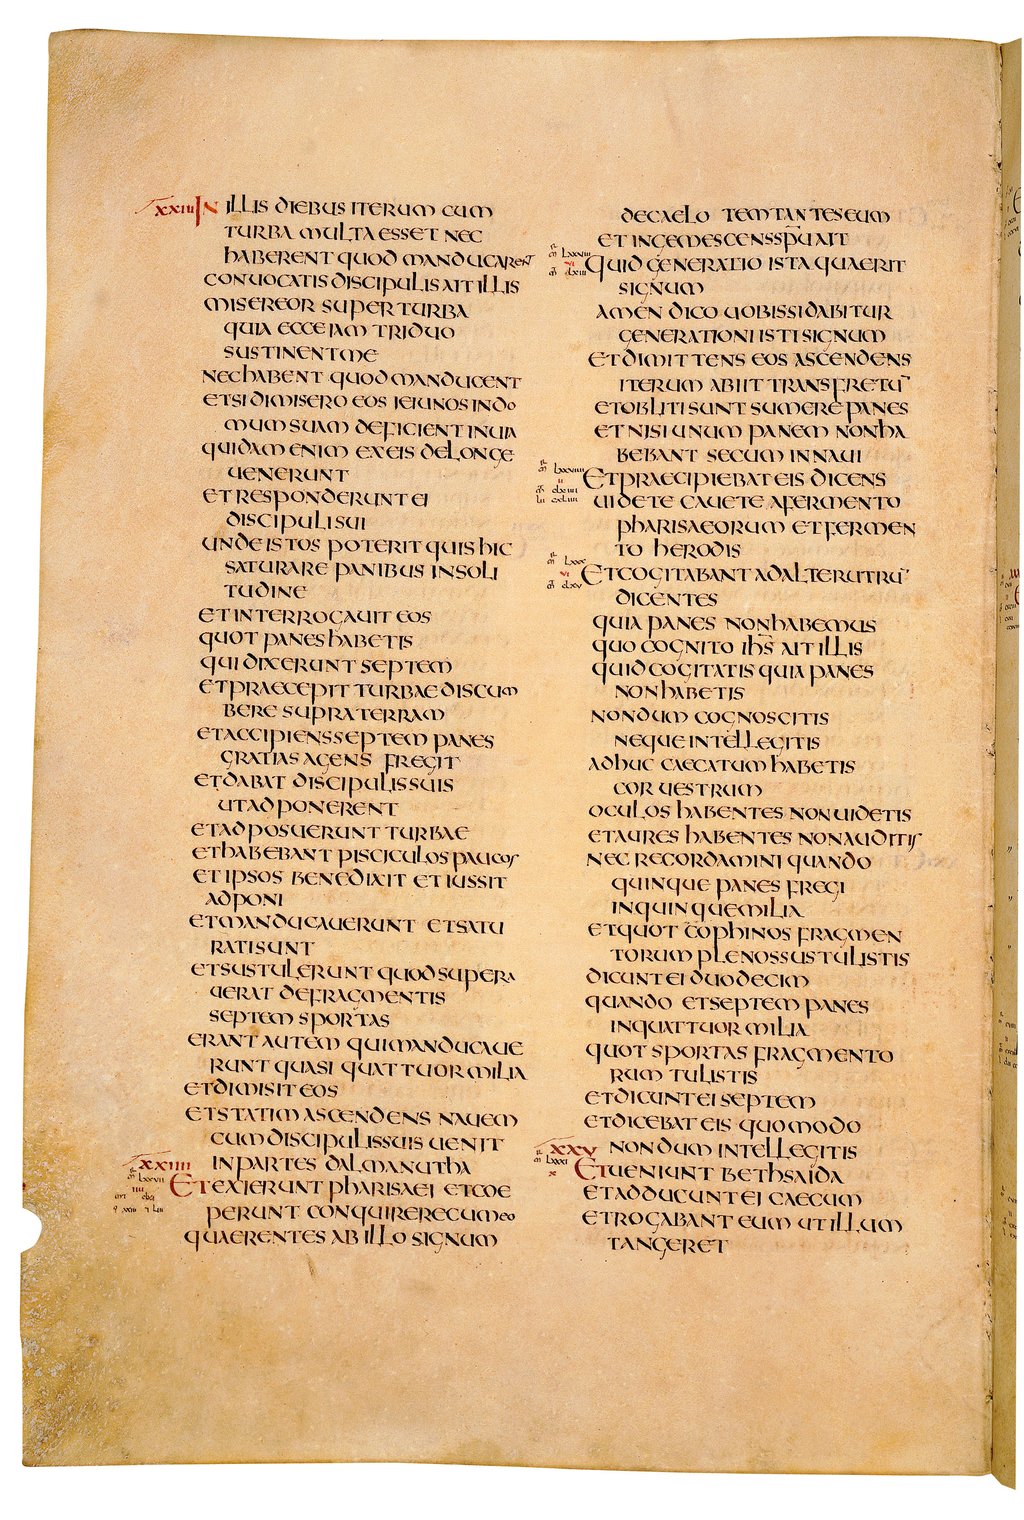 XXIII IN ILLIS DIEBUS ITERUM CUM
TURBA MULTA ESSET NEC
HABERENT QUOD MANDUCARENT
CONUOCATIS DISCIPULIS AIT ILLIS
MISEREOR SUPER TURBA
QUIA ECCE IAM TRIDUO
SUSTINENT ME
NEC HABENT QUOD MANDUCENT
ET SI DIMISERO EOS IEIUNOS IN DO
MUM SUAM DEFICIENT IN UIA
QUIDAM ENIM EX EIS DE LONGE
UENERUNT
ET RESPONDERUNT EI
DISCIPULI SUI
UNDE ISTOS POTERIT QUIS HIC
SATURARE PANIBUS IN SOLI
TUDINE
ET INTERROGAUIT EOS
QUOT PANES HABETIS
QUI DIXERUNT SEPTEM
ET PRAECEPIT TURBAE DISCUM
BERE SUPRA TERRAM
ET ACCIPIENS SEPTEM PANES
GRATIAS AGENS FREGIT
ET DABAT DISCIPULIS SUIS
UT ADPONERENT
ET ADPOSUERUNT TURBAE
ET HABEBANT PISCICULOS PAUCOS
ET IPSOS BENEDIXIT ET IUSSIT
ADPONI
ET MANDUCAUERUNT ET SATU
RATI SUNT
ET SUSTULERUNT QUOD SUPERA
UERAT DE FRAGMENTIS
SEPTEM SPORTAS
ERANT AUTEM QUI MANDUCAUE
RUNT QUASI QUATTUOR MILIA
ET DIMISIT EOS
ET STATIM ASCENDENS NAUEM
CUM DISCIPULIS SUIS UENIT
XXIIII IN PARTES DALMANUTHA
ET EXIERUNT PHARISAEI ET COE
PERUNT CONQUIRERE CUM EO
QUAERENTES AB ILLO SIGNUM
DE CAELO TEMTANTES EUM
ET INGEMESCENS SPU AIT
QUID GENERATIO ISTA QUAERIT
SIGNUM
AMEN DICO UOBIS SI DABITUR
GENERATIONI ISTI SIGNUM
ET DIMITTENS EOS ASCENDENS
ITERUM ABIIT TRANS FRETU
ET OBLITI SUNT SUMERE PANES
ET NISI UNUM PANEM NON HA
BEBANT SECUM IN NAUI
ET PRAECIPIEBAT EIS DICENS
UIDETE CAUETE A FERMENTO
PHARISAEORUM ET FERMEN
TO HERODIS
ET COGITABANT AD ALTERUTRU
DICENTES
QUIA PANES NON HABEMUS
QUO COGNITO IHS AIT ILLIS
QUID COGITATIS QUIA PANES
NON HABETIS
NONDUM COGNOSCITIS
NEQUE INTELLEGITIS
ADHUC CAECATUM HABETIS
COR UESTRUM
OCULOS HABENTES NON UIDETIS
ET AURES HABENTES NON AUDITIS
NEC RECORDAMINI QUANDO
QUINQUE PANES FREGI
IN QUINQUE MILIA
ET QUOT COPHINOS FRAGMEN
TORUM PLENOS SUSTULISTIS
DICUNT EI DUODECIM
QUANDO ET SEPTEM PANES
IN QUATTUOR MILIA
QUOT SPORTAS FRAGMENTO
RUM TULISTIS
ET DICUNT EI SEPTEM
ET DICEBAT EIS QUOMODO
XXV NONDUM INTELLEGITIS
ET UENIUNT BETHSAIDA
ET ADDUCUNT EI CAECUM
ET ROGABANT EUM UT ILLUM
TANGERET